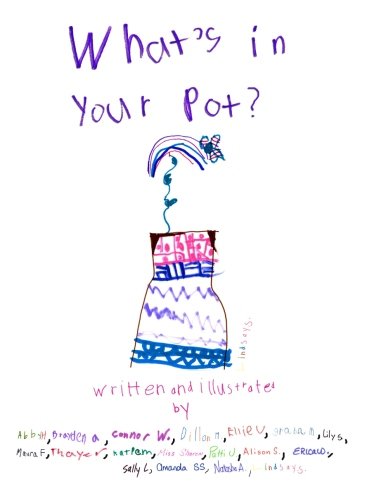 What's in
Your Pot?
Lindsay S.
written and illustrated
by
Abby H, Brayden a, Connor W., Dillan M, Ellie V, Graham M, Lily S,
Maura F, Thayer, Karlem, Miss Sharon, Patti U, Alison S., ERICA W.
Sally L, Amanda SS, Natasha A., Lindsay S.